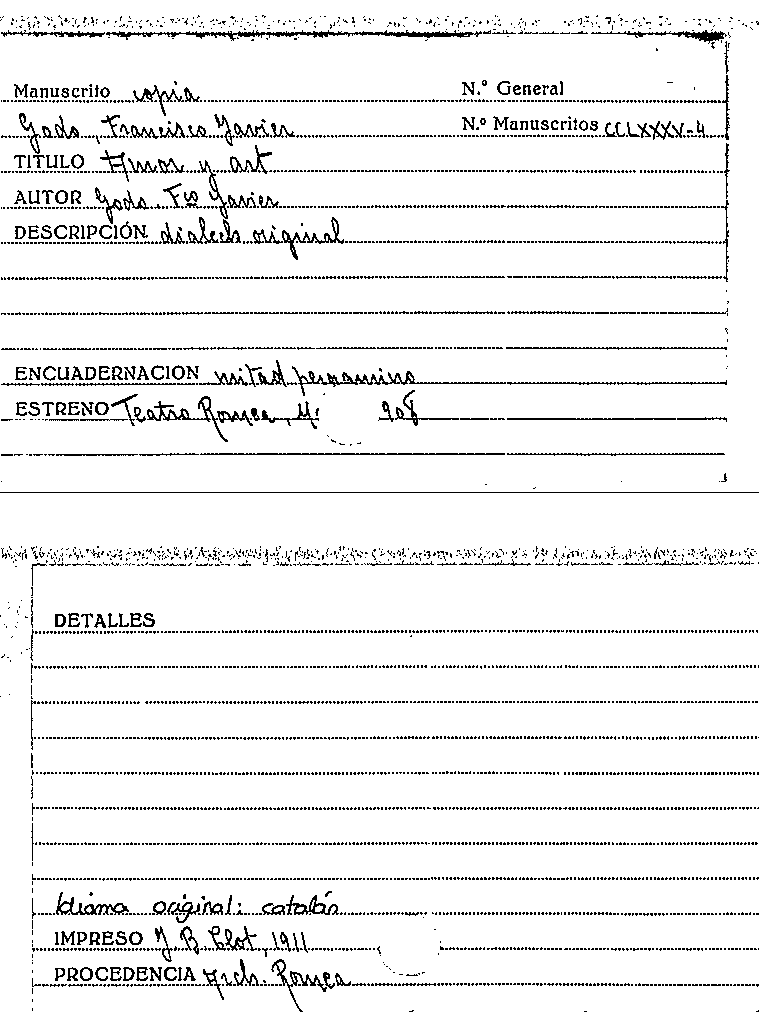 Manuscrito copia
N.º General
Godo, Francisco Javier
N.º Manuscritos CCLXXXV-4
TITULO Amor y art
AUTOR Godo. Fco Javier
DESCRIPCIÓN dialecto original
ENCUADERNACION mitad pergamino
ESTRENO Teatro Romea, 908
DETALLES
Idioma original: catalán
IMPRESO J. B. Clot, 1911
PROCEDENCIA Arch. Romea